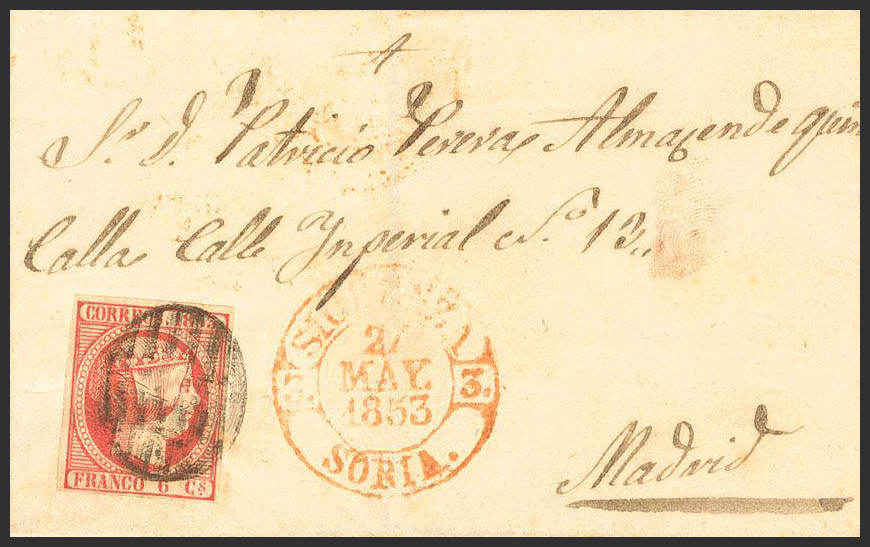 Sr. D. Patricio Perera, Almazen de
Calla Calle Ynperial No. 13,,
CORREOS 1853
FRANCO 6 Cs
MAY.
1853
3.
SORIA.
Madrid